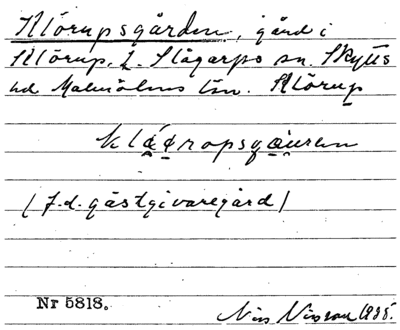 Klörupsgården, gård i
Klörup, L. Slågarps sn. Skytts
hd Malmöhus län. Klörup
(f.d. gästgivaregård)
Nr 5818.
Nils Nilsson 1935.